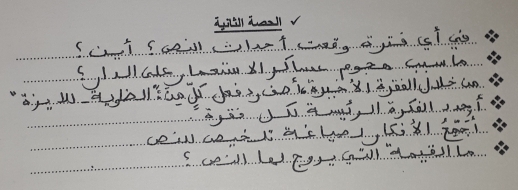 ✓ الحصة الثانية
❖ في أي فترة وقعت أحداث النص؟ أين؟
❖ ما سبب هجوم عساكر الاستعمار على الدار؟
❖ من خلال الفقرة الأخيرة، أصف ردة فعل كل من: "الطاوية - للا يزة"
❖ أحدد الفكرة الرئيسة لكل فقرة.
❖ أجمع الأفكار لصياغة تلخيص للنص
❖ ما القيمة التي يروج لها النص؟